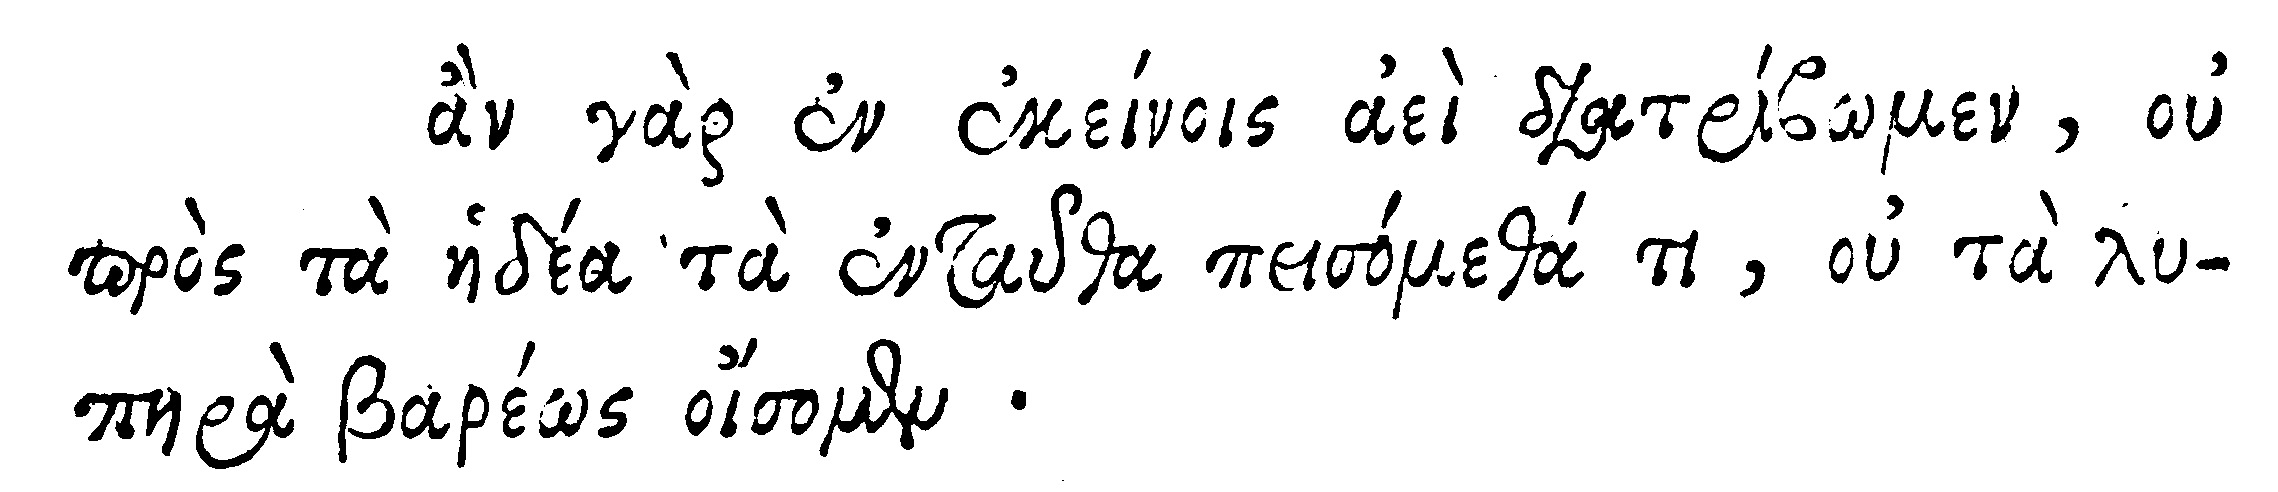 ἂν γὰρ ἐν ἐκείνοις ἀεὶ διατρίβωμεν, οὐ
πρὸς τὰ ἡδέα τὰ ἐνταῦθα πεισόμεθά τι, οὐ τὰ λυ-
πηρὰ βαρέως οἴσομεν.